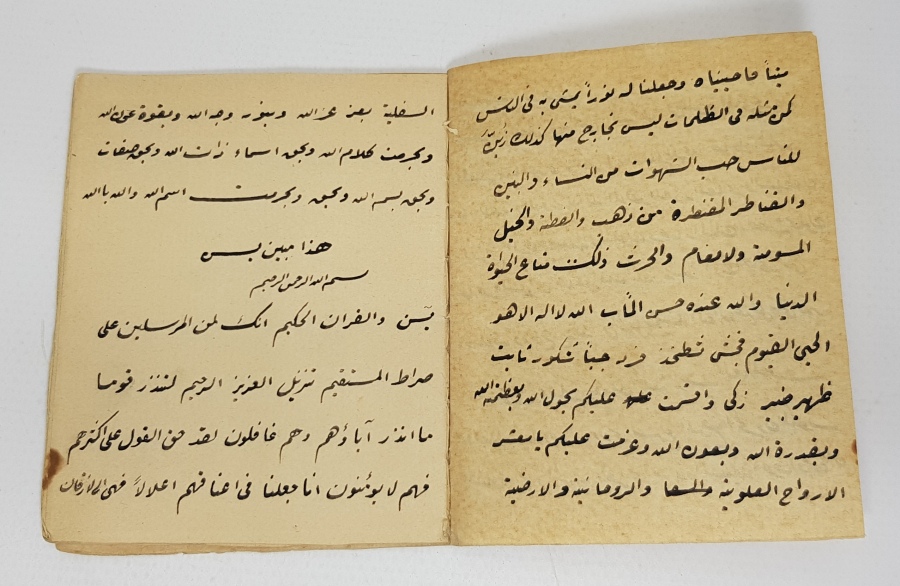 ميتاً فاحييناه وجعلنا له نوراً يمشي به في الناس
كمن مثله في الظلمات ليس بخارج منها كذلك زين
للناس حب الشهوات من النساء والبنين
والقناطر المقنطرة من ذهب والفضة والخيل
المسومة ولانعام والحرث ذلك متاع الحيوة
الدنيا والله عنده حسن المئاب الله لا اله الا هو
الحي القيوم فجش ثظخز فرد جباً شكور ثابت
ظهير خبير زكي واقسمت عليكم بحول الله وبعظمة الله
وبقدرة الله وبعون الله وعزمت عليكم يا معشر
الارواح العلوية والروحانية والارضية
السفلية بعز عز الله وبنور وجه الله وبقوة عون الله
وبحرمت كلام الله وبحق اسماء ذات الله وبحق صفات
وبحق بسم الله وبحق وبحرمت اسم الله والله بالله
هذا مبين يس
بسم الله الرحمن الرحيم
يس والقران الحكيم انك لمن المرسلين على
صراط المستقيم تنزيل العزيز الرحيم لتنذر قوما
ما انذر آباؤهم وهم غافلون لقد حق القول على اكثرهم
فهم لا يؤمنون انا جعلنا في اعناقهم اغلالاً فهي الى الاذقان